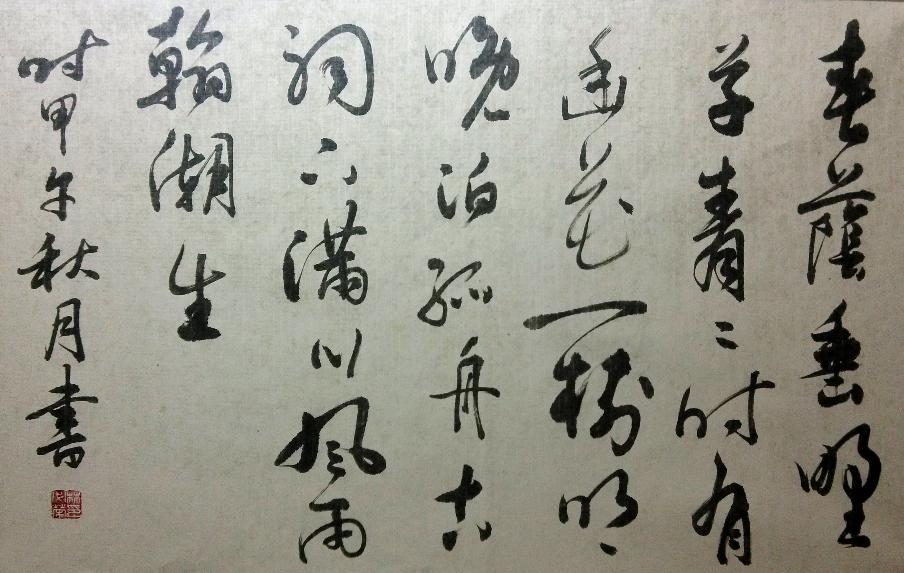 春蔭垂野
草青〻时有
幽花一樹明
晚泊孤舟古
祠下滿川風雨
翰潮生
时甲午秋月書